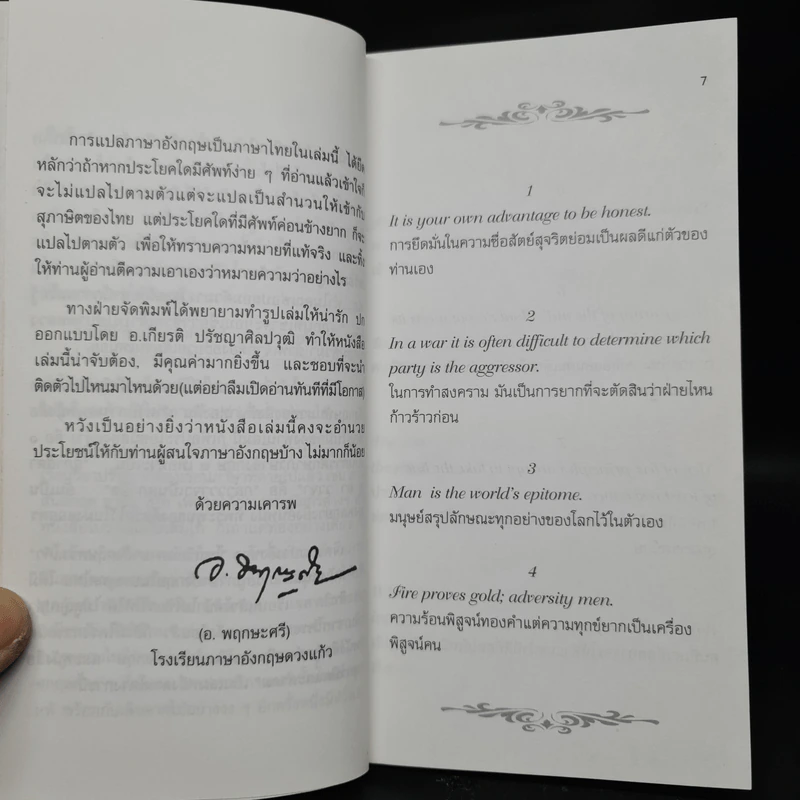 การแปลภาษาอังกฤษเป็นภาษาไทยในเล่มนี้ ได้ยึด
หลักว่าถ้าหากประโยคใดมีศัพท์ง่าย ๆ ที่อ่านแล้วเข้าใจก็
จะไม่แปลไปตามตัวแต่จะแปลเป็นสำนวนให้เข้ากับ
สุภาษิตของไทย แต่ประโยคใดที่มีศัพท์ค่อนข้างยาก ก็จะ
แปลไปตามตัว เพื่อให้ทราบความหมายที่แท้จริง และทิ้ง
ให้ท่านผู้อ่านตีความเอาเองว่าหมายความว่าอย่างไร
ทางฝ่ายจัดพิมพ์ได้พยายามทำรูปเล่มให้น่ารัก ปก
ออกแบบโดย อ.เกียรติ ปรัชญาศิลปวุฒิ ทำให้หนังสือ
เล่มนี้น่าจับต้อง, มีคุณค่ามากยิ่งขึ้น และชอบที่จะนำ
ติดตัวไปไหนมาไหนด้วย(แต่อย่าลืมเปิดอ่านทันทีที่มีโอกาส)
หวังเป็นอย่างยิ่งว่าหนังสือเล่มนี้คงจะอำนวย
ประโยชน์ให้กับท่านผู้สนใจภาษาอังกฤษบ้าง ไม่มากก็น้อย
ด้วยความเคารพ
(อ. พฤกษะศรี)
โรงเรียนภาษาอังกฤษดวงแก้ว
7
1
It is your own advantage to be honest.
การยึดมั่นในความซื่อสัตย์สุจริตย่อมเป็นผลดีแก่ตัวของ
ท่านเอง
2
In a war it is often difficult to determine which
party is the aggressor.
ในการทำสงคราม มันเป็นการยากที่จะตัดสินว่าฝ่ายไหน
ก้าวร้าวก่อน
3
Man is the world's epitome.
มนุษย์สรุปลักษณะทุกอย่างของโลกไว้ในตัวเอง
4
Fire proves gold; adversity men.
ความร้อนพิสูจน์ทองคำแต่ความทุกข์ยากเป็นเครื่อง
พิสูจน์คน